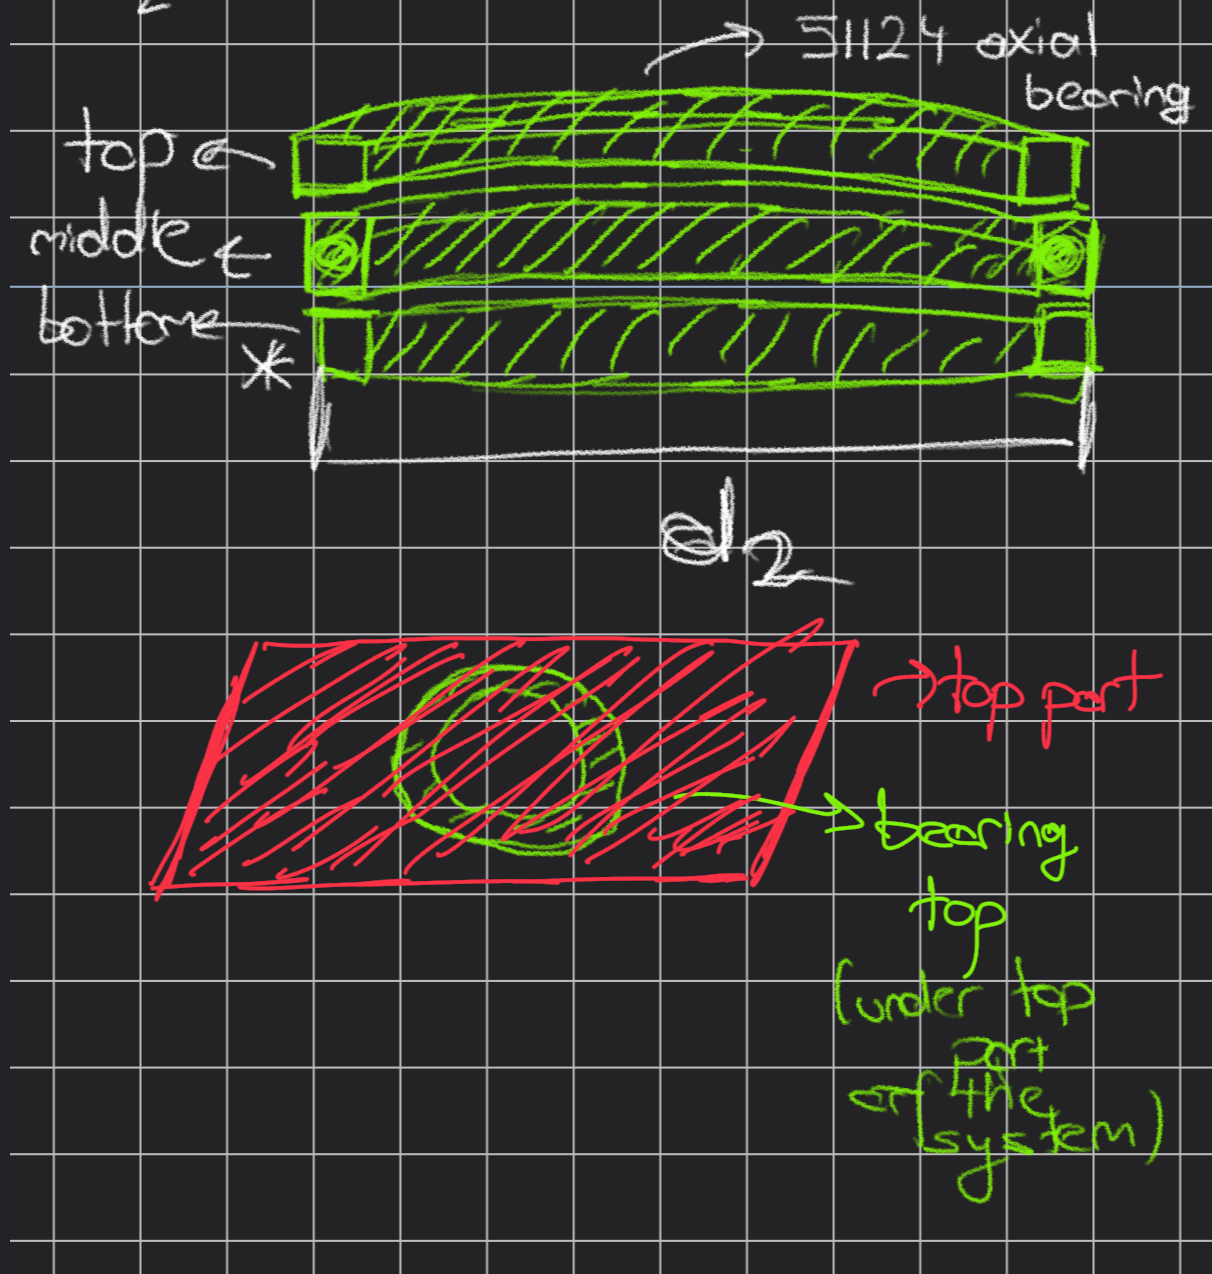 51124 axial
bearing
top
middle
bottome
*
d2
top part
bearing
top
(under top
part
of the
system)